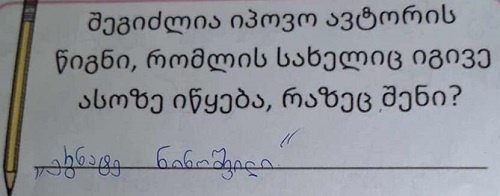 შეგიძლია იპოვო ავტორის
წიგნი, რომლის სახელიც იგივე
ასოზე იწყება, რაზეც შენი?
„ეგნატე ნინოშვილი“